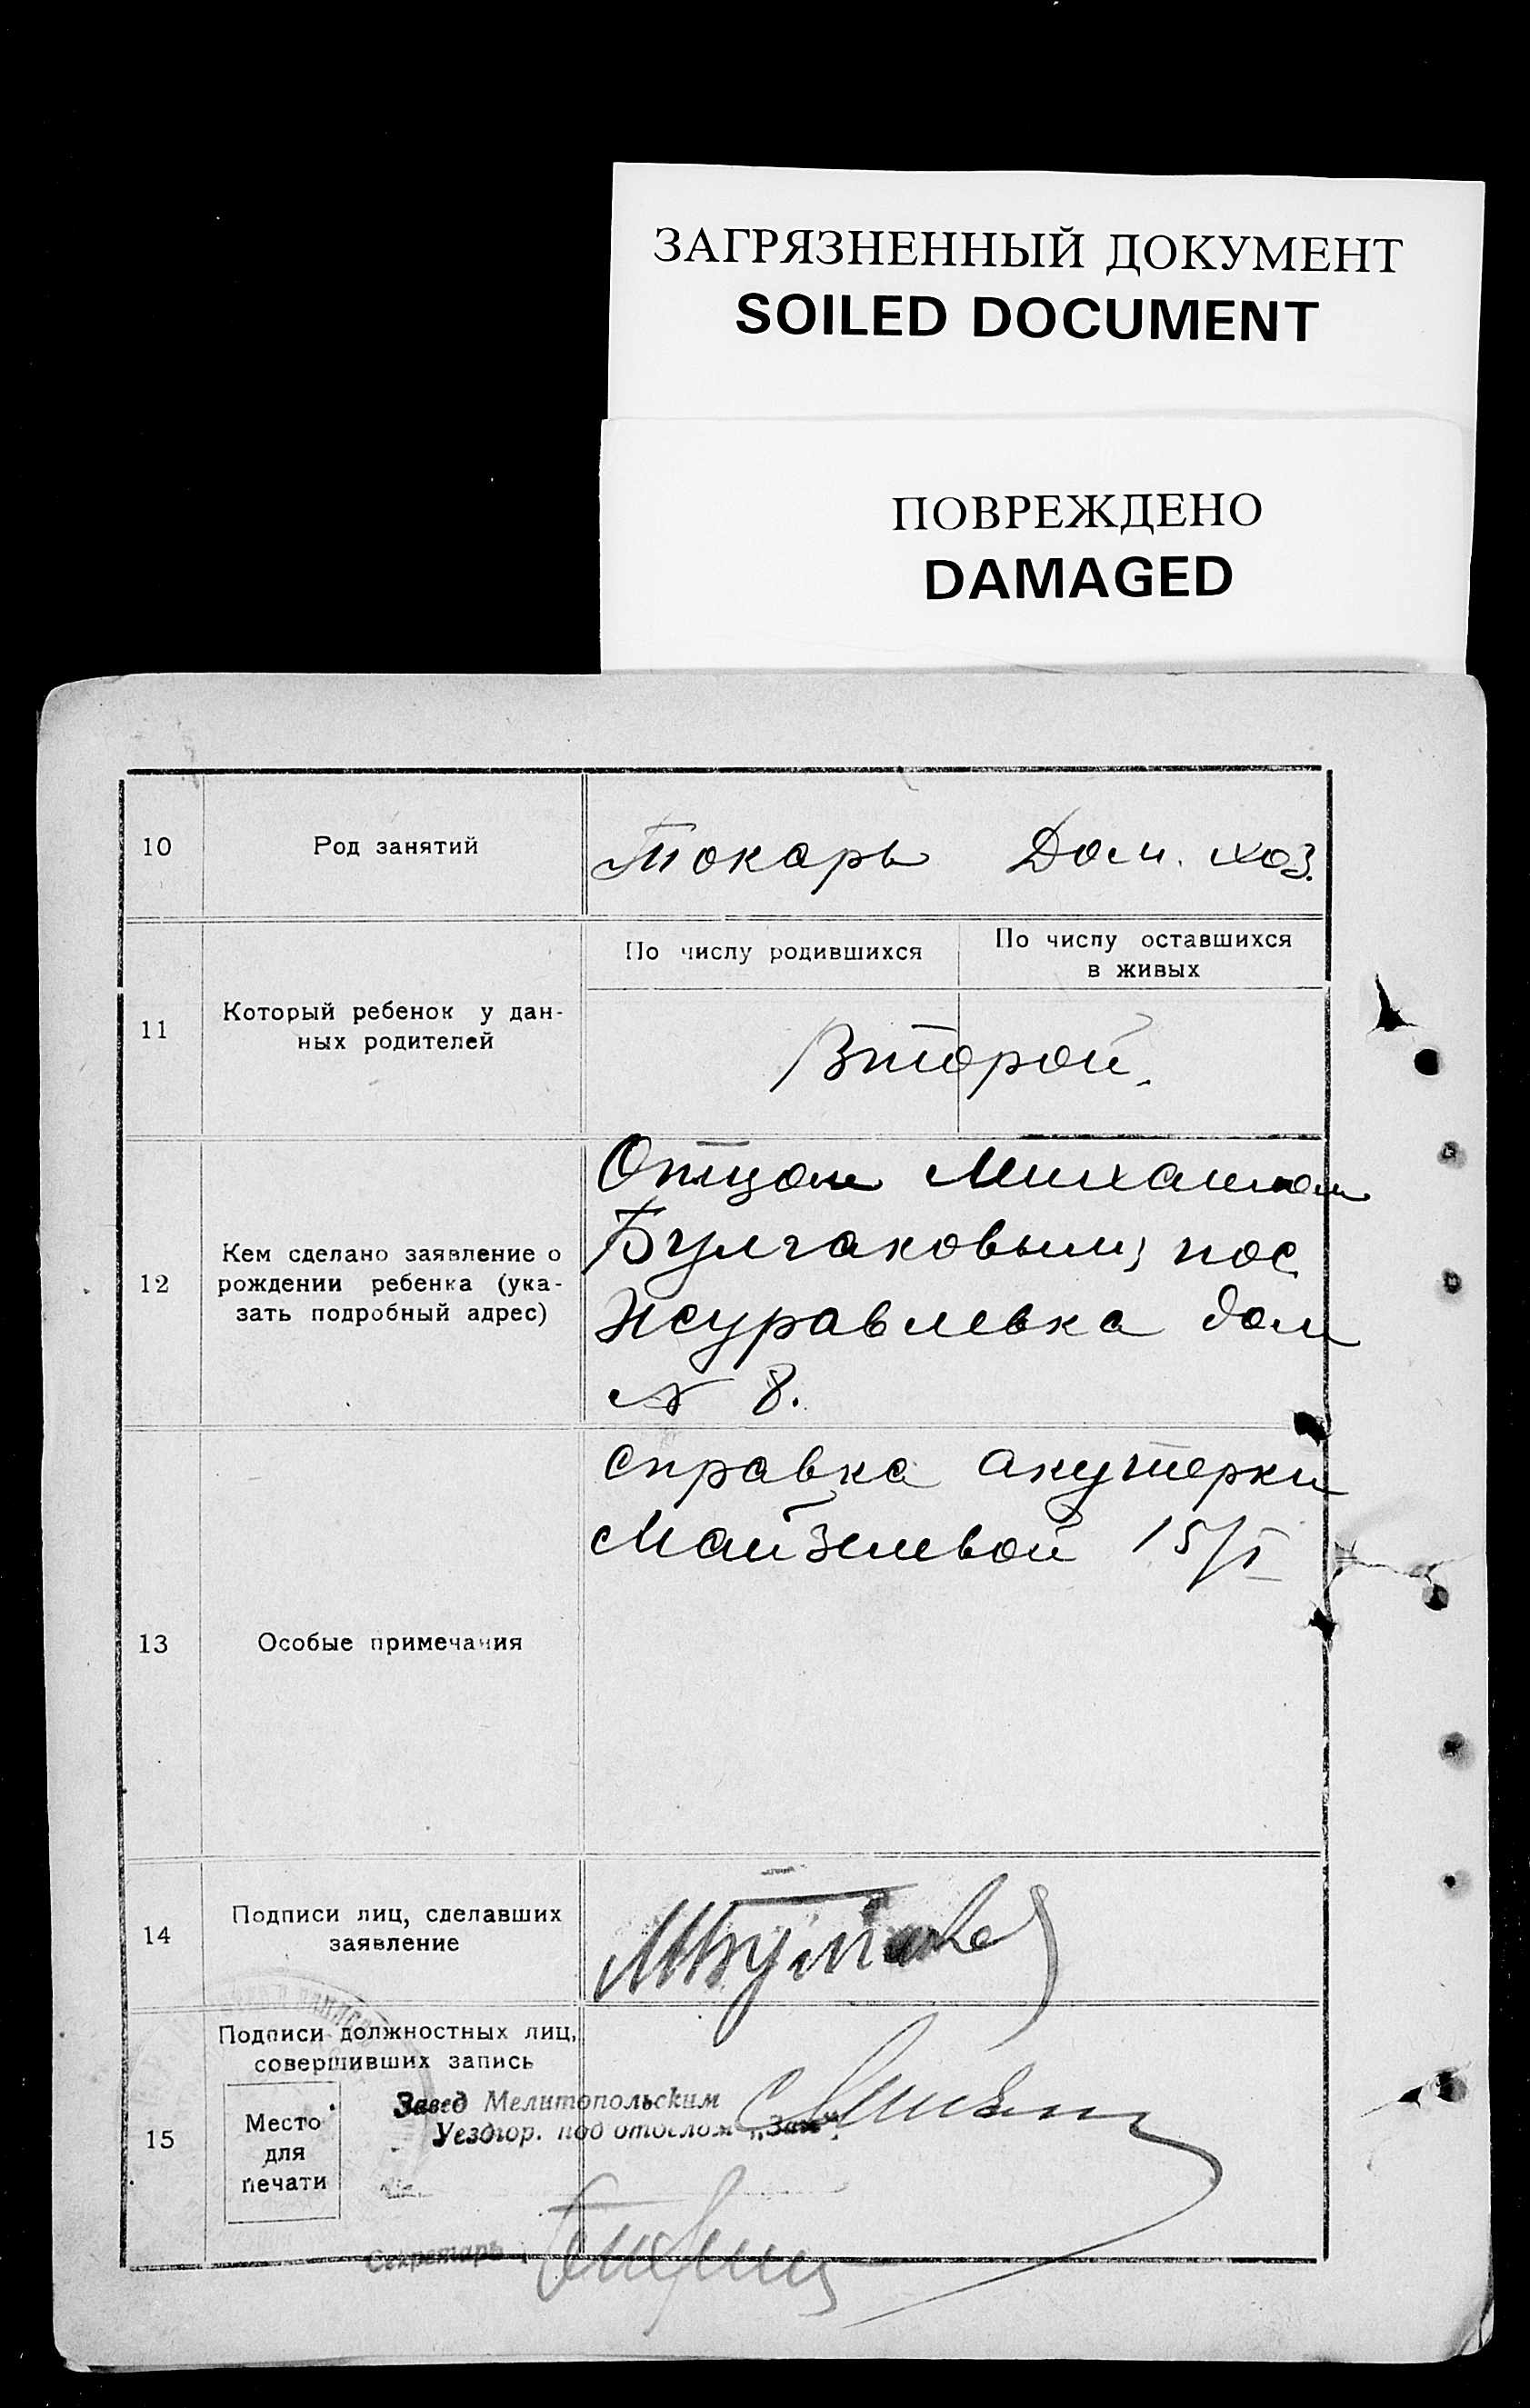 ЗАГРЯЗНЕННЫЙ ДОКУМЕНТ
SOILED DOCUMENT
ПОВРЕЖДЕНО
DAMAGED
10 Род занятий Токарь Дом. хоз.
По числу родившихся По числу оставшихся
в живых
11 Который ребенок у дан-
ных родителей
Второй.
12 Кем сделано заявление о
рождении ребенка (ука-
зать подробный адрес)
Отцом Михаилом
Булгаковым, пос
Журавлевка дом
№ 8.
13 Особые примечания
Справка акушерки
Майзелевой 15/I
14 Подписи лиц, сделавших
заявление
15 Подписи должностных лиц,
совершивших запись
Место
для
печати
Завед Мелитопольским
Уездгор. под отделом „Загс“
Секретарь